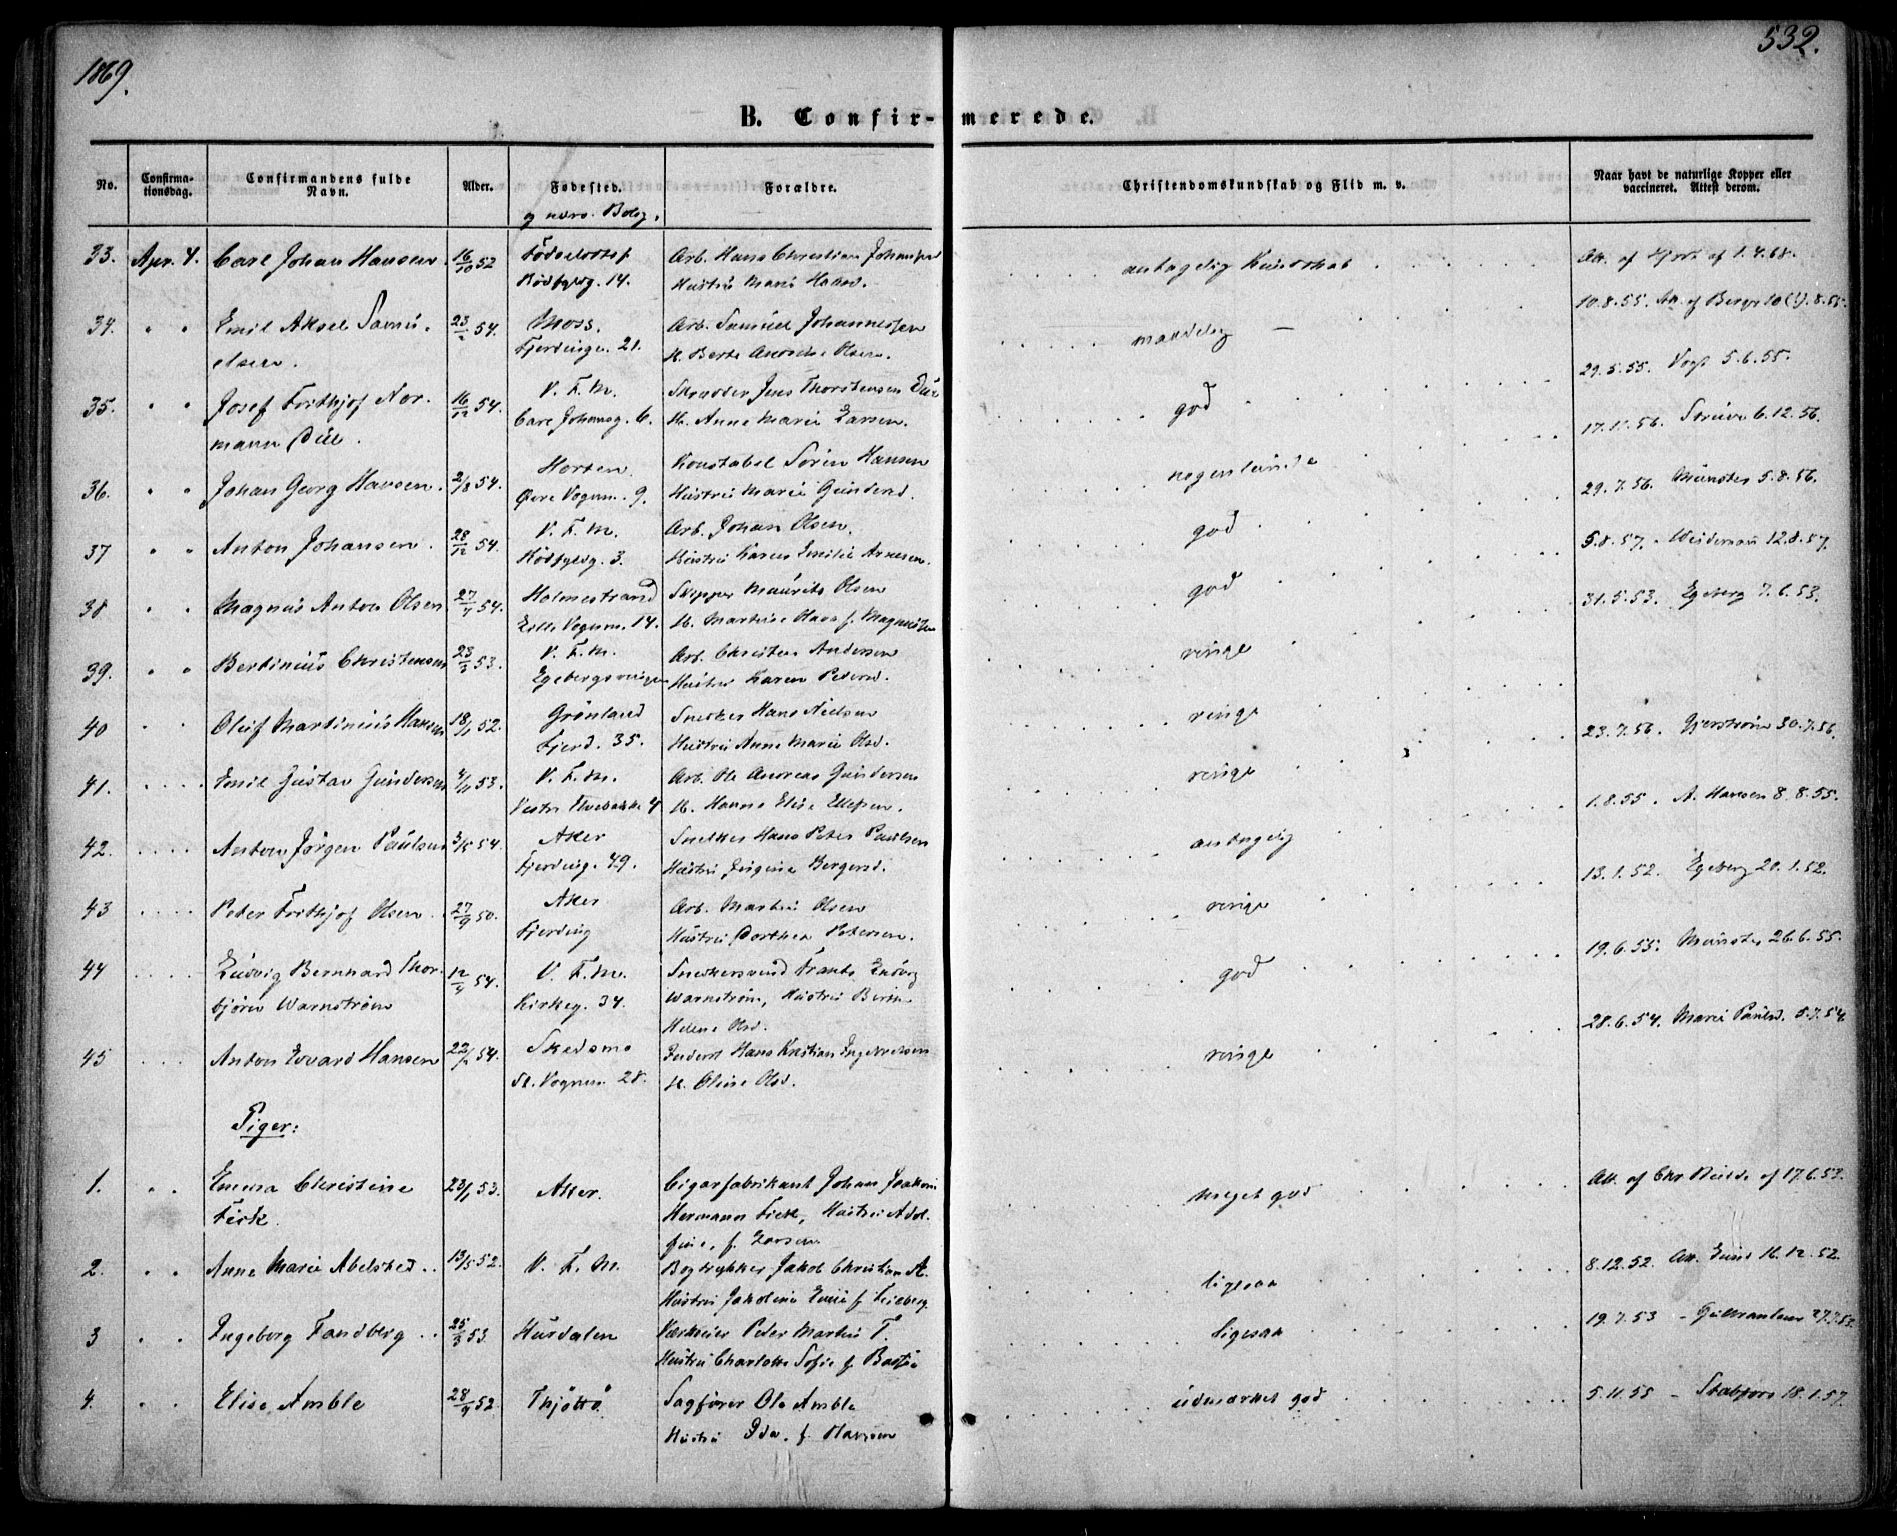 1869.
532.
B. Confir-merede.
No.
Confirma-
tionsdag.
Confirmandens fulde
Navn.
Alder.
Fødested.
og nærv. Bolig.
Forældre.
Christendomskundskab og Flid m. v.
Naar havt de naturlige Kopper eller
vaccineret. Attest derom.
33. Apr. 4. Carl Johan Hansen 16/10 52 Arb. Hans Christian antagelig Kundskab Att. af af 1.4.68.
14. Hustru Marie
34. " " Emil Aksel Samu- 23/2 54. Moss. Arb. Samuel Johannessen maadelig — 10.8.55. Att. af 8.55.
elsen. Fjerdinge. 21. H. Berte Olsen.
35. " " Josef Frithjof Nor- 16/12 54. V. F. M. Skrædder Jens Thorstensen god 29.5.55. Vogt 5.6.55.
mann Due. Carl Johansg. 6. H. Anne Marie Larsen.
36. " " Johan Georg Hansen. 2/8 54. Horten Konstabel Søren Hansen nogenlunde 17.11.56. 6.12.56.
Øvre Vognm. 9. Hustru Marie Gundersd.
37 " " Anton Johansen. 28/12 54. V. F. M. Arb. Johan Olsen god 29.7.56. Münster 5.8.56.
3. Hustru Karen Emilie Arnesen.
38 " " Magnus Anton Olsen 27/7 54. Holmestrand Skipper Maurits Olsen god 5.8.57. 12.8.57.
Lille Vognm. 14. H. Martine f. Magnus
39. " " Bertinius Christensen 23/3 53. V. F. M. Arb. Christen Andersen ringe 31.5.53. Egeberg 7.6.53.
Egebergsveien Hustru Karen Petersd.
40 " " Oluf Martinius Hansen 18/1 52. Grønland Snedker Hans Nielsen ringe
Fjerd. 35. Hustru Anne Marie Olsd.
41. Emil Gustav Gundersen 53. V. F. M. Arb. Ole Andreas Gundersen ringe 23.7.56. Gjerstrøm 30.7.56.
4 H. Hanna Elise Ellefsen.
42. Anton Jørgen Paulsen 3/5 54. Aker Snedker Hans Peter Paulsen antagelig 1.8.55. A. Hansen 8.8.55.
Fjerding. 49. Hustru Jørgine Bergersd.
43 Peter Frithjof Olsen 27/9 50. Aker Arb. Martin Olsen ringe 13.1.52. Egeberg 20.1.52.
Fjerding Hustru Dorthea Petersen.
44 Ludvig Bernhard Thor- 12/4 54. V. F. M. Snedkersvend Frants Ludvig god 19.6.55. Münster 26.6.55.
bjørn Warnstrøm Kirkeg. 34. Warnstrøm, Hustru
Helene Olsd.
45 Anton Edvard Hansen 22/2 54. Skedsmo Hans Kristian ringe 28.6.54. Marie Paulsd. 5.7.54.
St. Vognm. 28. H. Oline Olsd.
Piger:
1. " " Emma Christine 23/1 53. Aker. Cigarfabrikant Johan Joakim meget god Att. af Chr af 17.6.53.
Fick. Hermann Fick, Hustru Adol-
fine, f. Larsen
2. " " Anne Marie Abelsted 13/5 52. V. F. M. Bogtrykker Jakob Christian A. ligesaa 8.12.52. Att. 16.12.52.
Hustru Jakobine Emilie f.
3 " " Ingeborg Fandberg 25/3 53. Hurdalen Peter Martin F. ligesaa 19.7.53 27.7.53.
Hustru Charlotte Sofie f.
4. " " Elise Amble 28/9 52. Thjøttø Sagfører Ole Amble udmærket god 5.11.55 — 18.1.57.
Hustru Ida. f.